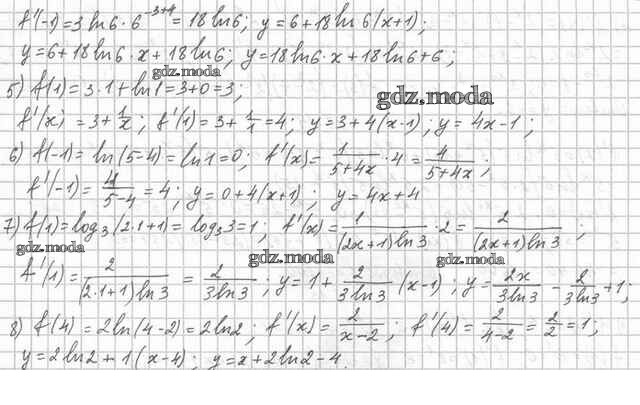 f'(-1)=3 ln6 · 6^{-3+4} = 18 ln6; y = 6+18 ln 6(x+1);
y = 6+18 ln6 · x + 18 ln6; y = 18 ln6 · x + 18 ln6 + 6;
gdz.moda
5) f(1) = 3·1 + ln1 = 3+0 = 3;
gdz.moda
f'(x) = 3 + 1/x; f'(1) = 3 + 1/1 = 4; y = 3 + 4(x-1); y = 4x-1;
6) f(-1) = ln(5-4) = ln1 = 0; f'(x) = 1/(5+4x) · 4 = 4/(5+4x);
f'(-1) = 4/(5-4) = 4; y = 0+4(x+1); y = 4x+4
7) f(1) = log₃(2·1+1) = log₃3 = 1; f'(x) = 1/((2x+1)ln3) · 2 = 2/((2x+1)ln3);
gdz.moda gdz.moda gdz.moda
f'(1) = 2/((2·1+1)ln3) = 2/(3ln3); y = 1 + 2/(3ln3) (x-1); y = 2x/(3ln3) - 2/(3ln3) + 1;
8) f(4) = 2ln(4-2) = 2ln2; f'(x) = 2/(x-2); f'(4) = 2/(4-2) = 2/2 = 1;
y = 2ln2 + 1(x-4); y = x + 2ln2 - 4.